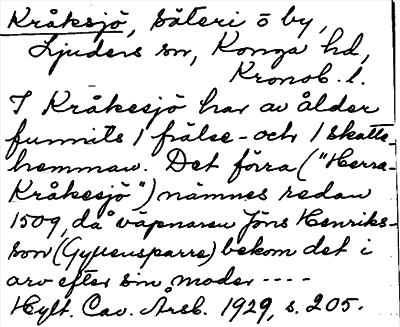 Kråksjö, säteri o by,
Ljuders sn, Konga hd,
Kronob. l.
I Kråkesjö har av ålder
funnits 1 frälse- och 1 skatte-
hemman. Det förra ("Herra-
Kråkesjö") nämnes redan
1509, då väpnaren Jöns Henriks-
son (Gyllensparre) bekom det i
arv efter sin moder ----
Hylt. Cav. Årsb. 1929, s. 205.